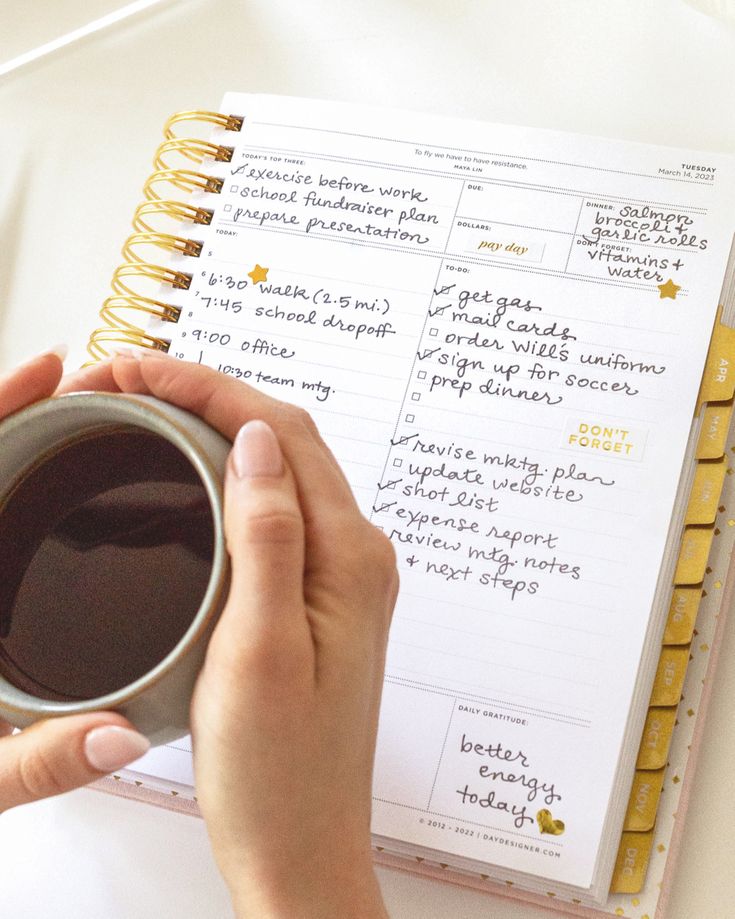 To fly we have to have resistance.
MAYA LIN
TUESDAY
March 14, 2023
TODAY'S TOP THREE:
exercise before work
school fundraiser plan
prepare presentation
DUE:
DOLLARS:
pay day
DINNER:
salmon
broccoli &
garlic rolls
DON'T FORGET:
vitamins +
water
TODAY:
5
6
6:30 walk (2.5 mi.)
7
7:45 school dropoff
8
9
9:00 office
10
10:30 team mtg.
TO-DO:
get gas
mail cards
order Will's uniform
sign up for soccer
prep dinner
DON'T
FORGET
revise mktg. plan
update website
shot list
expense report
review mtg. notes
& next steps
DAILY GRATITUDE:
better
energy
today
© 2012 - 2022 | DAYDESIGNER.COM
APR
MAY
JUN
AUG
SEP
OCT
NOV
DEC